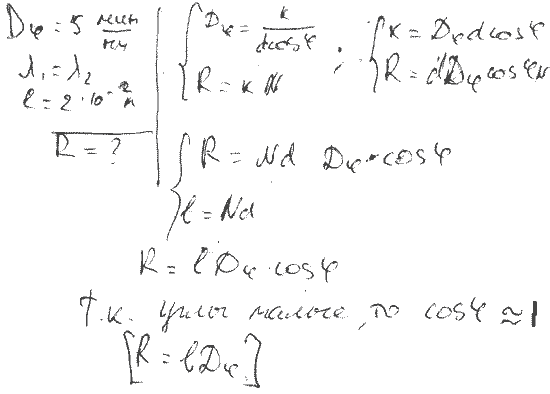 Dφ = 5 мин/нм
λ₁ = λ₂
l = 2·10⁻² м
R = ?
{ Dφ = k/(d cosφ)
{ R = kN
; { k = Dφ d cosφ
{ R = d Dφ cosφ N
{ R = Nd Dφ · cosφ
{ l = Nd
R = l Dφ · cosφ
т.к. углы малые, то cosφ ≃ 1
[R = l Dφ]